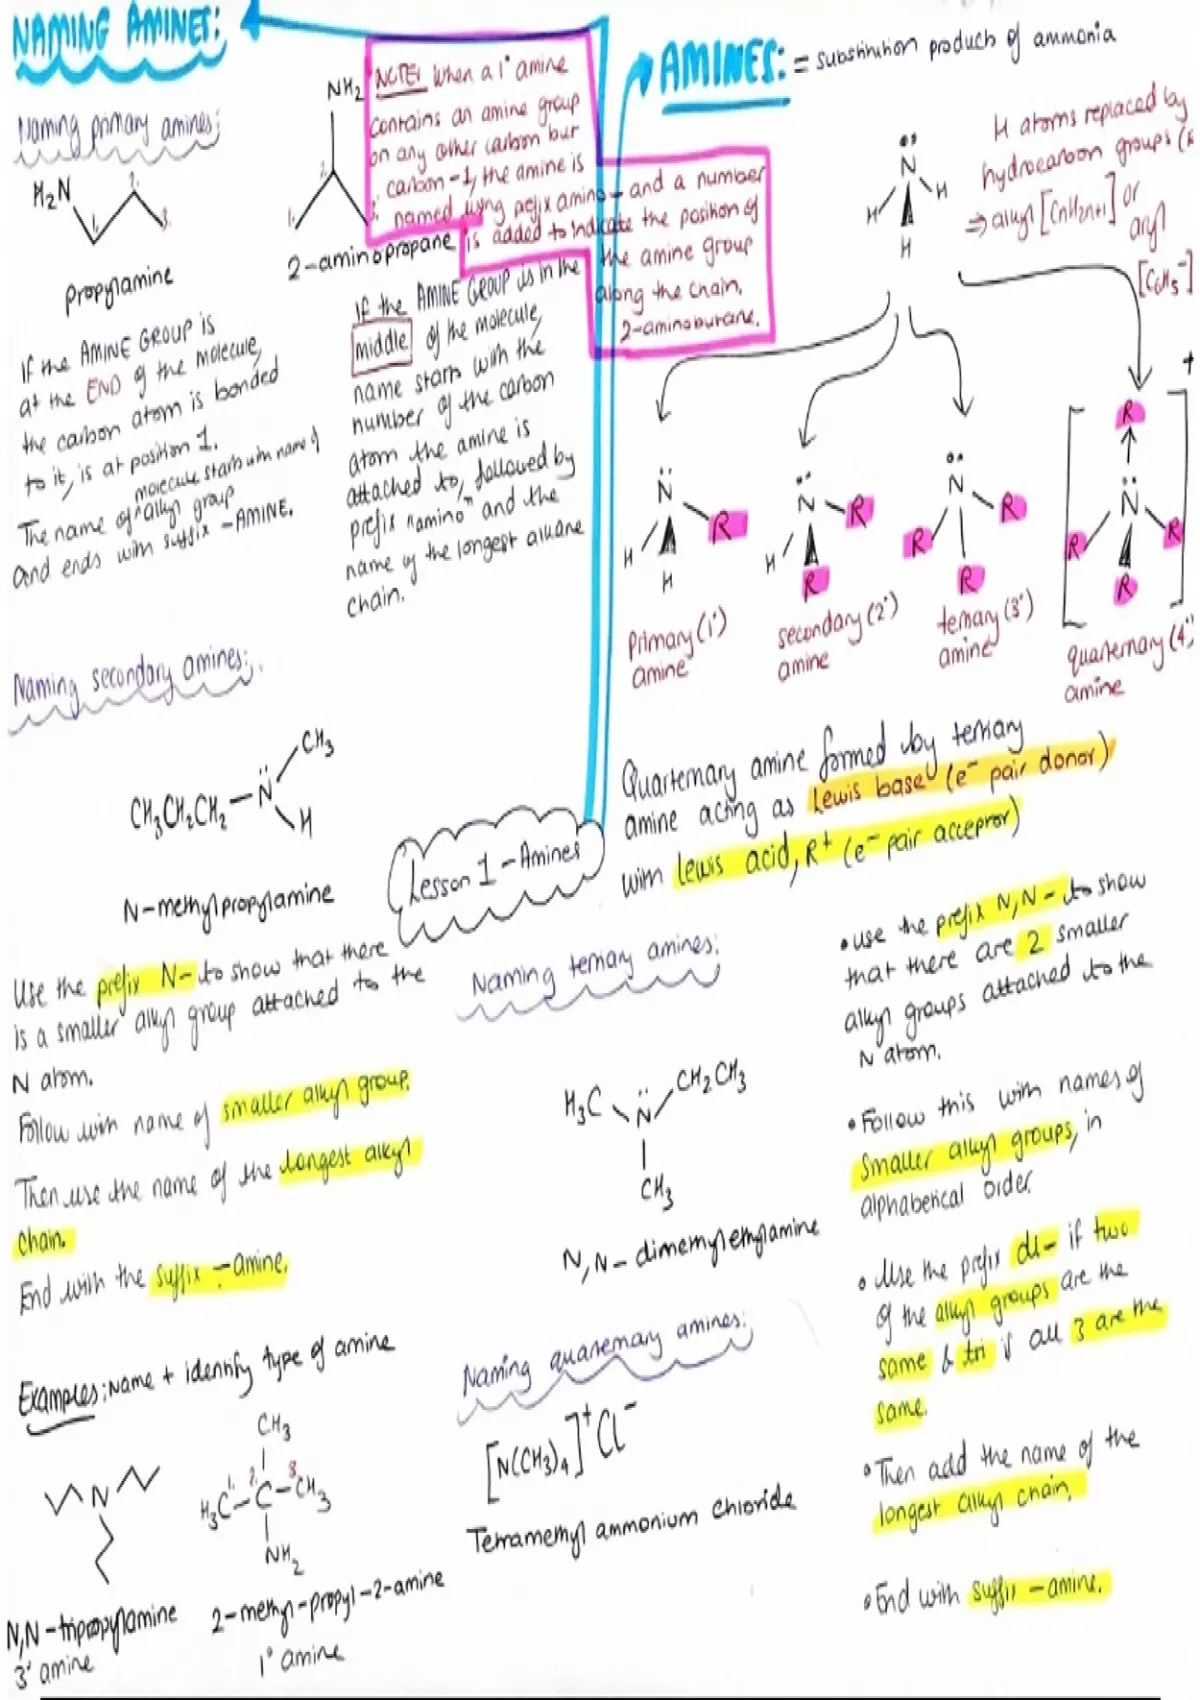 NAMING AMINES:
Naming primary amines:
H₂N
1. 2. 3.
propylamine
NH₂
1. 2. 3.
2-aminopropane
NOTE: When a 1° amine
contains an amine group
on any other carbon but
carbon-1, the amine is
named using prefix amino- and a number
is added to indicate the position of
the amine group
along the chain.
2-aminobutane.
If the AMINE GROUP is
at the END of the molecule,
the carbon atom is bonded
to it, is at position 1.
molecule starts with name of
The name of alkyl group
and ends with suffix -AMINE.
If the AMINE GROUP is in the
middle of the molecule,
name starts with the
number of the carbon
atom the amine is
attached to, followed by
prefix "amino" and the
name of the longest alkane
chain.
AMINES: = substitution product of ammonia
N
H H
H
H atoms replaced by
hydrocarbon groups
⇒ alkyl [CnH2n+1] or
aryl
[C₆H₅⁻]
N
H R
H
primary (1°)
amine
N
H R
R
secondary (2°)
amine
N
R R
R
tertiary (3°)
amine
R
N
R R
R
+
quarternary (4°)
amine
Quarternary amine formed by tertiary
amine acting as Lewis base (e⁻ pair donor)
with lewis acid, R⁺ (e⁻ pair acceptor)
Naming secondary amines:
CH₃
CH₃CH₂CH₂-N
H
N-methylpropylamine
Lesson 1 - Amines
Use the prefix N- to show that there
is a smaller alkyl group attached to the
N atom.
Follow with name of smaller alkyl group.
Then use the name of the longest alkyl
chain.
End with the suffix -amine.
Examples: Name + identify type of amine
N
N,N-tripropylamine
3° amine
CH₃
1. 2. 3
H₃C-C-CH₃
NH₂
2-methyl-propyl-2-amine
1° amine
Naming tertiary amines:
H₃C N CH₂CH₃
CH₃
N,N-dimethylethylamine
Naming quarternary amines:
[N(CH₃)₄]⁺Cl⁻
Tetramethyl ammonium chloride
•use the prefix N,N- to show
that there are 2 smaller
alkyl groups attached to the
N atom.
•Follow this with names of
smaller alkyl groups, in
alphabetical order.
•Use the prefix di- if two
of the alkyl groups are the
same & tri if all 3 are the
same.
•Then add the name of the
longest alkyl chain,
•End with suffix -amine.